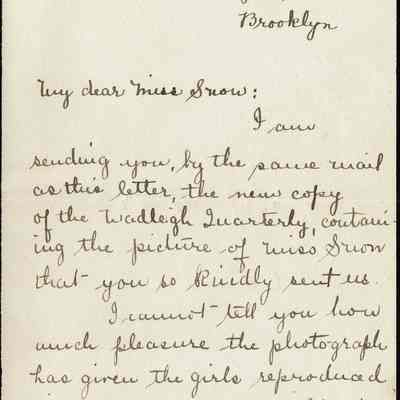 Brooklyn
My dear Miss Snow:
I am
sending you, by the same mail
as this letter, the new copy
of the Wadleigh Quarterly, contain-
ing the picture of Miss Snow
that you so kindly sent us.
I cannot tell you how
much pleasure the photograph
has given the girls reproduced